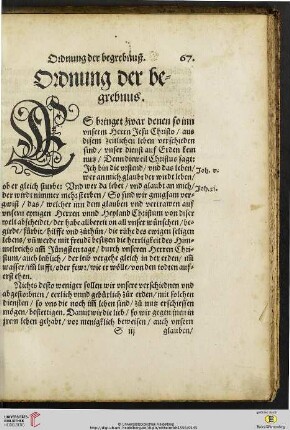 Ordnung der begrebnuß. 67.
Ordnung der be-
grebnus.
ES bringet zwar denen so inn
unserem Herren Jesu Christo / aus
disem zeitlichen leben verschieden
sind / unser dienst auf Erden kein
nutz / Denn dieweil Christus sagt:
Ich bin die ufstend / und das leben /
wer an mich glaubt der wirdt leben /
Joh. v.
ob er gleich stürbe: Und wer da lebet / und glaubt an mich /
der wirdt nimmer mehr sterben / So sind wir gnugsam ver-
Joh. xi.
gwiß / das / welcher inn dem glauben und vertrawen auf
unsern einigen Herren unnd Heyland Christum von diser
welt abscheidet / der habe allbereit on all unser wünschen / be-
girde / fürbit / hülffe und zůthůn / die růhe des ewigen seligen
lebens / und werde mit freuden besitzen die herrligkeit des Him-
melreichs am Jüngsten tage / durch unseren Herren Chri-
stum / auch leiblich / der leib vergehe gleich in der erden / im
wasser / im lufft / oder fewr / wie er wölle / von den todten auf-
ersthehen.
Nichts desto weniger sollen wir unsere verschiednen und
abgestorbnen / erlich unnd gebürlich zůr erden / mit solchen
diensten / so uns die noch im leben sind / zů nutz erschiessen
mögen / bestettigen. Damit wir die lieb / so wir gegen inen in
irem leben gehabt / vor menigklich beweisen / auch unsern
S iij glauben /
UNIVERSITÄTS-
BIBLIOTHEK
HEIDELBERG
© Universitätsbibliothek Heidelberg